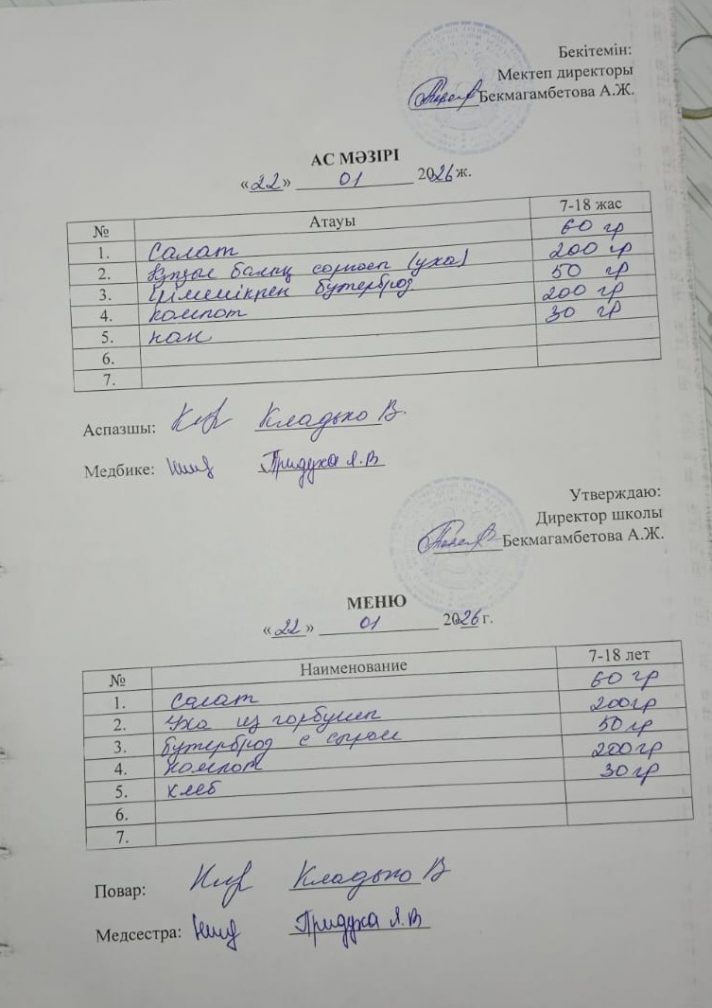 Бекітемін:
Мектеп директоры
Бекмагамбетова А.Ж.
АС МӘЗІРІ
«22» 01 2026 ж.
№ Атауы 7-18 жас
1. Салат 60 гр
2. Қызыл балық сорпасы (уха) 200 гр
3. Ірімшікпен бутерброд 50 гр
4. компот 200 гр
5. нан 30 гр
6.
7.
Аспазшы: Кладько В.
Медбике: Придуха Я.В
Утверждаю:
Директор школы
Бекмагамбетова А.Ж.
МЕНЮ
«22» 01 2026 г.
№ Наименование 7-18 лет
1. Салат 60 гр
2. Уха из горбуши 200гр
3. бутерброд с сыром 50 гр
4. компот 200гр
5. хлеб 30гр
6.
7.
Повар: Кладько В
Медсестра: Придуха Я.В